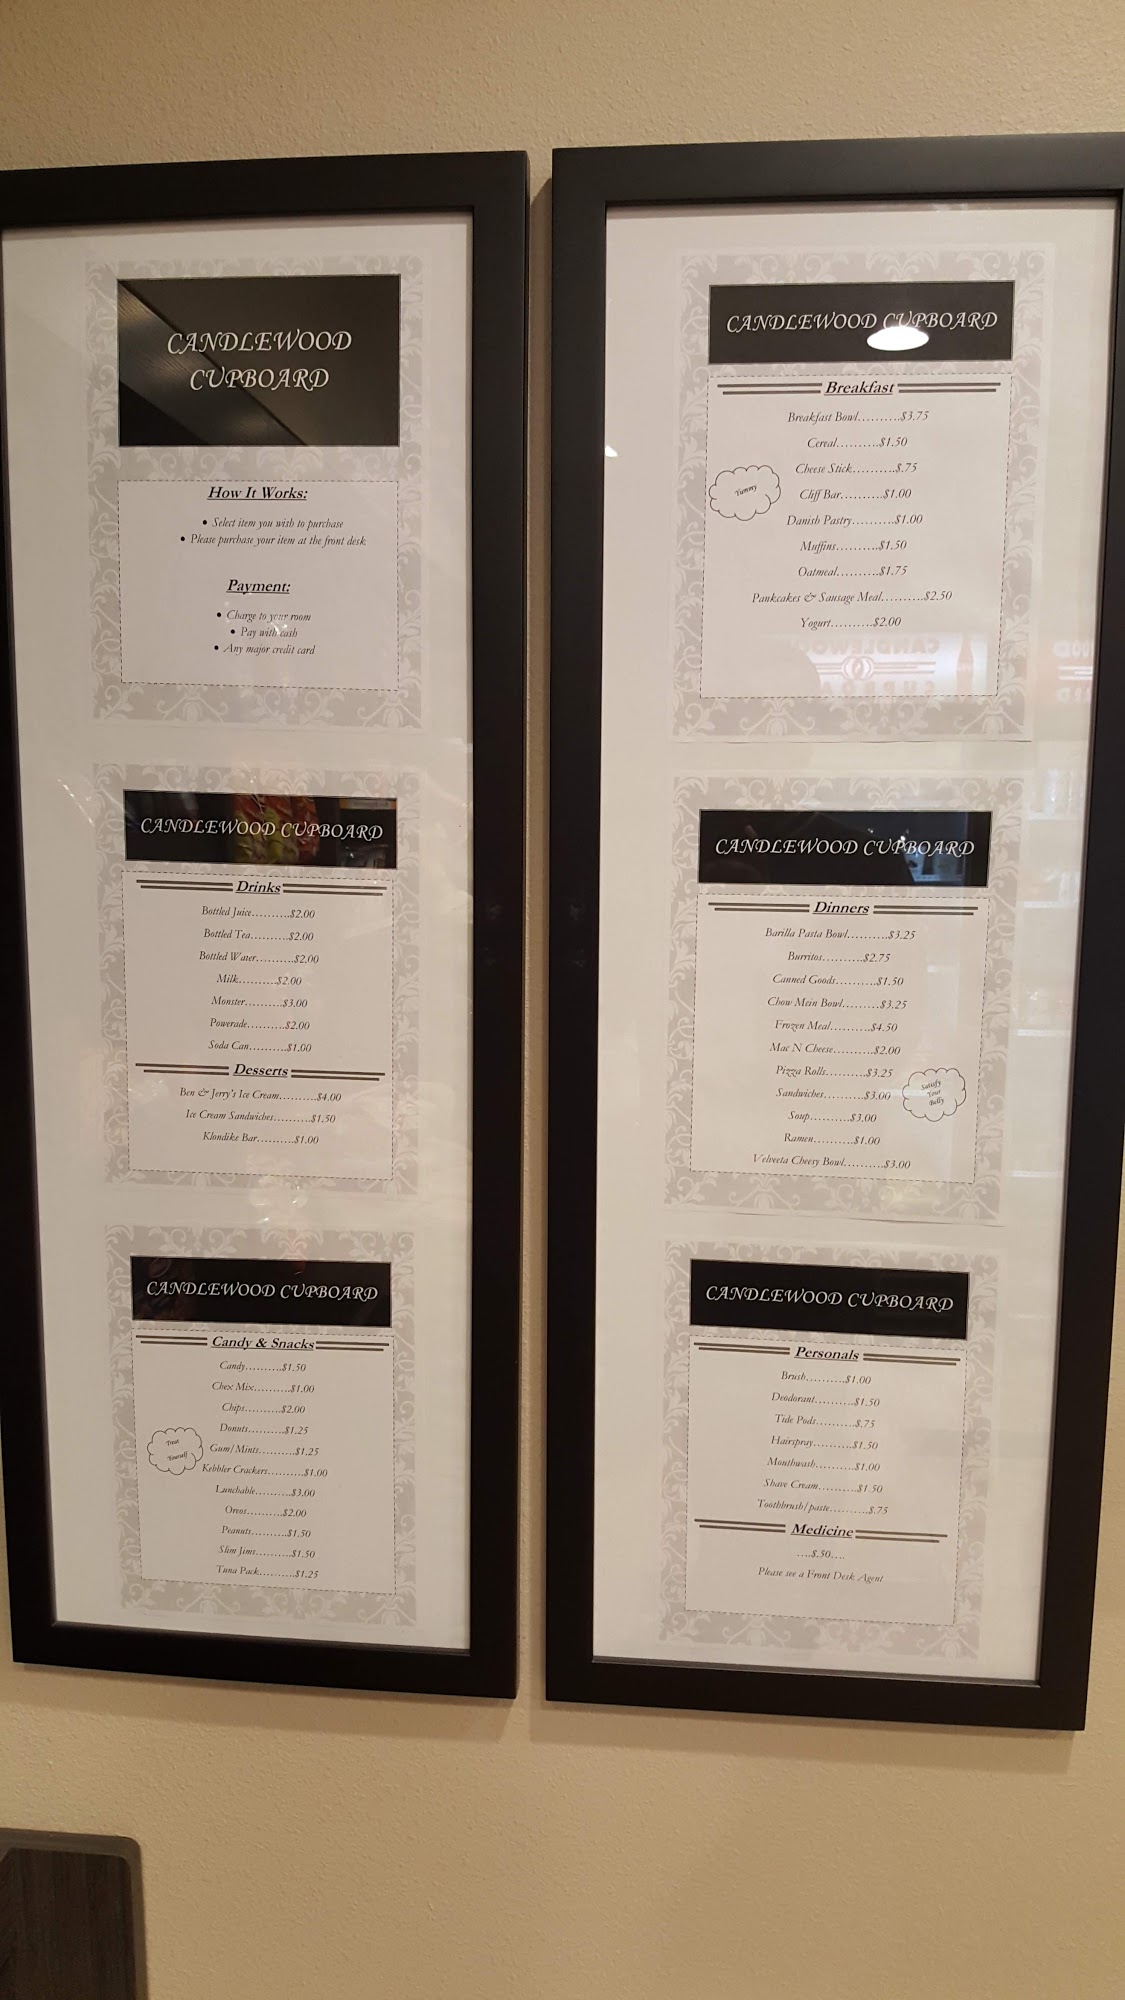 CANDLEWOOD
CUPBOARD
How It Works:
• Select item you wish to purchase
• Please purchase your item at the front desk
Payment:
• Charge to your room
• Pay with cash
• Any major credit card
CANDLEWOOD CUPBOARD
Drinks
Bottled Juice..........$2.00
Bottled Tea..........$2.00
Bottled Water..........$2.00
Milk..........$2.00
Monster..........$3.00
Powerade..........$2.00
Soda Can..........$1.00
Desserts
Ben & Jerry's Ice Cream..........$4.00
Ice Cream Sandwiches..........$1.50
Klondike Bar..........$1.00
CANDLEWOOD CUPBOARD
Candy & Snacks
Candy..........$1.50
Chex Mix..........$1.00
Chips..........$2.00
Donuts..........$1.25
Gum/Mints..........$1.25
Kebbler Crackers..........$1.00
Lunchable..........$3.00
Oreos..........$2.00
Peanuts..........$1.50
Slim Jims..........$1.50
Tuna Pack..........$1.25
Treat
Yourself
CANDLEWOOD CUPBOARD
Breakfast
Breakfast Bowl..........$3.75
Cereal..........$1.50
Cheese Stick..........$.75
Cliff Bar..........$1.00
Danish Pastry..........$1.00
Muffins..........$1.50
Oatmeal..........$1.75
Pankcakes & Sausage Meal..........$2.50
Yogurt..........$2.00
Yummy
CANDLEWOOD CUPBOARD
Dinners
Barilla Pasta Bowl..........$3.25
Burritos..........$2.75
Canned Goods..........$1.50
Chow Mein Bowl..........$3.25
Frozen Meal..........$4.50
Mac N Cheese..........$2.00
Pizza Rolls..........$3.25
Sandwiches..........$3.00
Soup..........$3.00
Ramen..........$1.00
Velveeta Cheesy Bowl..........$3.00
Satisfy
Your
Belly
CANDLEWOOD CUPBOARD
Personals
Brush..........$1.00
Deodorant..........$1.50
Tide Pods..........$.75
Hairspray..........$1.50
Mouthwash..........$1.00
Shave Cream..........$1.50
Toothbrush/paste..........$.75
Medicine
....$.50....
Please see a Front Desk Agent